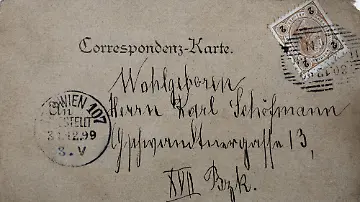 Correspondenz-Karte.
Wohlgeboren
Herrn Karl Schöfmann
Gschwandtnergasse 13,
XVII Bzk.
WIEN 107
BESTELLT
31.12.99
8.V
2
2